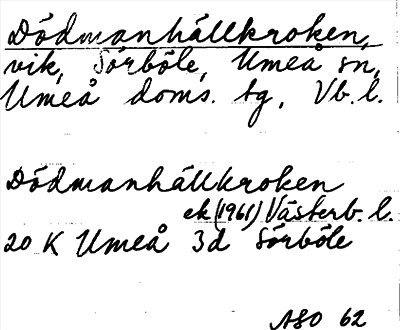 Dödmanhällkroken,
vik, Sörböle, Umeå sn,
Umeå doms. tg, Vb. l.
Dödmanhällkroken
ek (1961) Västerb. l.
20 K Umeå 3d Sörböle
ASO 62